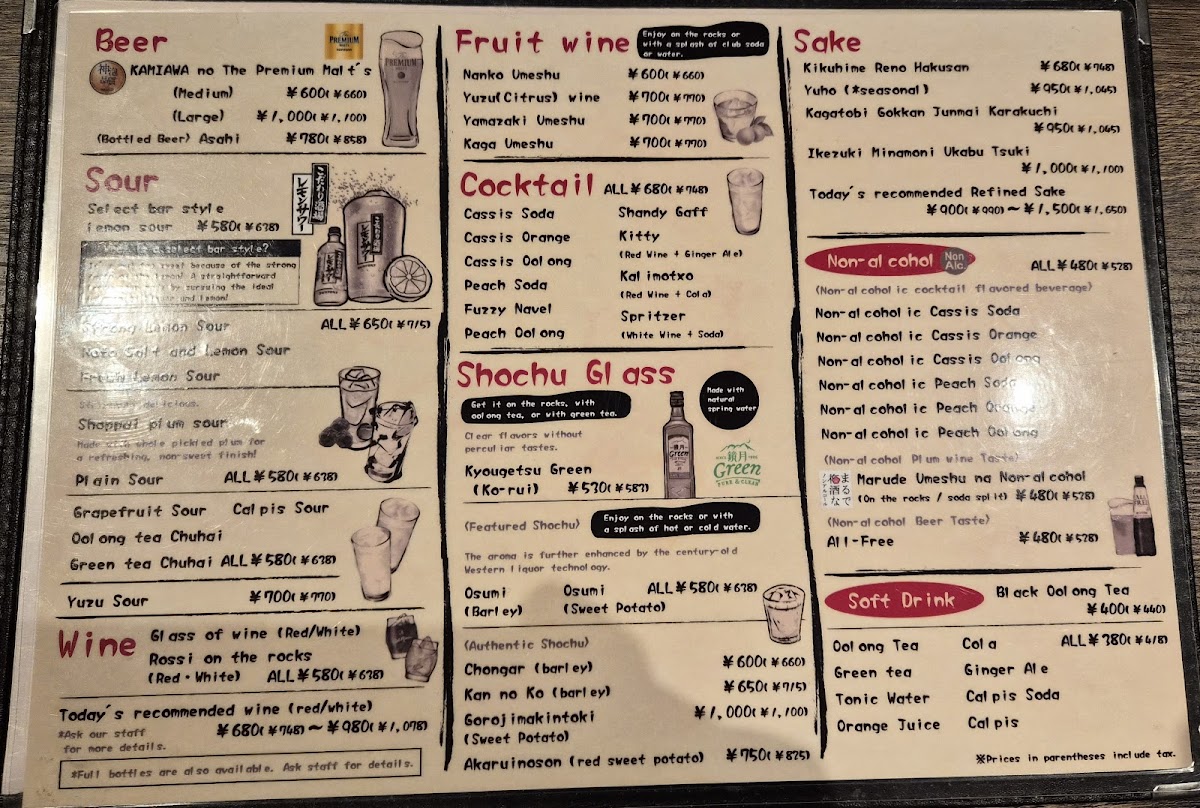 Beer
PREMIUM
KAMIAWA no The Premium Malt's
(Medium) ¥600(¥660)
(Large) ¥1,000(¥1,100)
(Bottled Beer) Asahi ¥780(¥858)
Sour
Select bar style
lemon sour ¥580(¥638)
こだわり酒場
レモンサワー
What is a select bar style?
because of the strong
A straightforward
by pursuing the ideal
and lemon!
Strong Lemon Sour ALL¥650(¥715)
Salt and Lemon Sour
Fresh Lemon Sour
delicious.
Shappai plum sour
Made with whole pickled plum for
a refreshing, non-sweet finish!
Plain Sour ALL¥580(¥638)
Grapefruit Sour Calpis Sour
Oolong tea Chuhai
Green tea Chuhai ALL¥580(¥638)
Yuzu Sour ¥700(¥770)
Wine
Glass of wine (Red/White)
Rossi on the rocks
(Red・White) ALL¥580(¥638)
Today's recommended wine (red/white)
*Ask our staff
for more details.
¥680(¥748)〜¥980(¥1,078)
*Full bottles are also available. Ask staff for details.
Fruit wine
Enjoy on the rocks or
with a splash of club soda
or water.
Nanko Umeshu ¥600(¥660)
Yuzu(Citrus) wine ¥700(¥770)
Yamazaki Umeshu ¥700(¥770)
Kaga Umeshu ¥700(¥770)
Cocktail ALL¥680(¥748)
Cassis Soda
Cassis Orange
Cassis Oolong
Peach Soda
Fuzzy Navel
Peach Oolong
Shandy Gaff
Kitty
(Red Wine + Ginger Ale)
Kalimotxo
(Red Wine + Cola)
Spritzer
(White Wine + Soda)
Shochu Glass
Get it on the rocks, with
oolong tea, or with green tea.
Made with
natural
spring water
Clear flavors without
perculiar tastes.
Kyougetsu Green
(Ko-rui) ¥530(¥583)
鏡月
Green
鏡月
Green
PURE & CLEAR
(Featured Shochu)
Enjoy on the rocks or with
a splash of hot or cold water.
The aroma is further enhanced by the century-old
Western liquor technology.
Osumi
(Barley)
Osumi
(Sweet Potato)
ALL¥580(¥638)
(Authentic Shochu)
Chongar (barley) ¥600(¥660)
Kan no Ko (barley) ¥650(¥715)
Gorojimakintoki ¥1,000(¥1,100)
(Sweet Potato)
Akaruinoson (red sweet potato) ¥750(¥825)
Sake
Kikuhime Reno Hakusan ¥680(¥748)
Yuho (*seasonal) ¥950(¥1,045)
Kagatobi Gokkan Junmai Karakuchi
¥950(¥1,045)
Ikezuki Minamoni Ukabu Tsuki
¥1,000(¥1,100)
Today's recommended Refined Sake
¥900(¥990)〜¥1,500(¥1,650)
Non-alcohol
Non
Alc.
ALL¥480(¥528)
(Non-alcoholic cocktail flavored beverage)
Non-alcoholic Cassis Soda
Non-alcoholic Cassis Orange
Non-alcoholic Cassis Oolong
Non-alcoholic Peach Soda
Non-alcoholic Peach Orange
Non-alcoholic Peach Oolong
(Non-alcohol Plum wine Taste)
まるで
梅酒な
ノンアルコール
Marude Umeshu na Non-alcohol
(On the rocks / soda split) ¥480(¥528)
(Non-alcohol Beer Taste)
All-Free ¥480(¥528)
Soft Drink
Black Oolong Tea
¥400(¥440)
Oolong Tea Cola ALL¥380(¥418)
Green tea Ginger Ale
Tonic Water Calpis Soda
Orange Juice Calpis
※Prices in parentheses include tax.